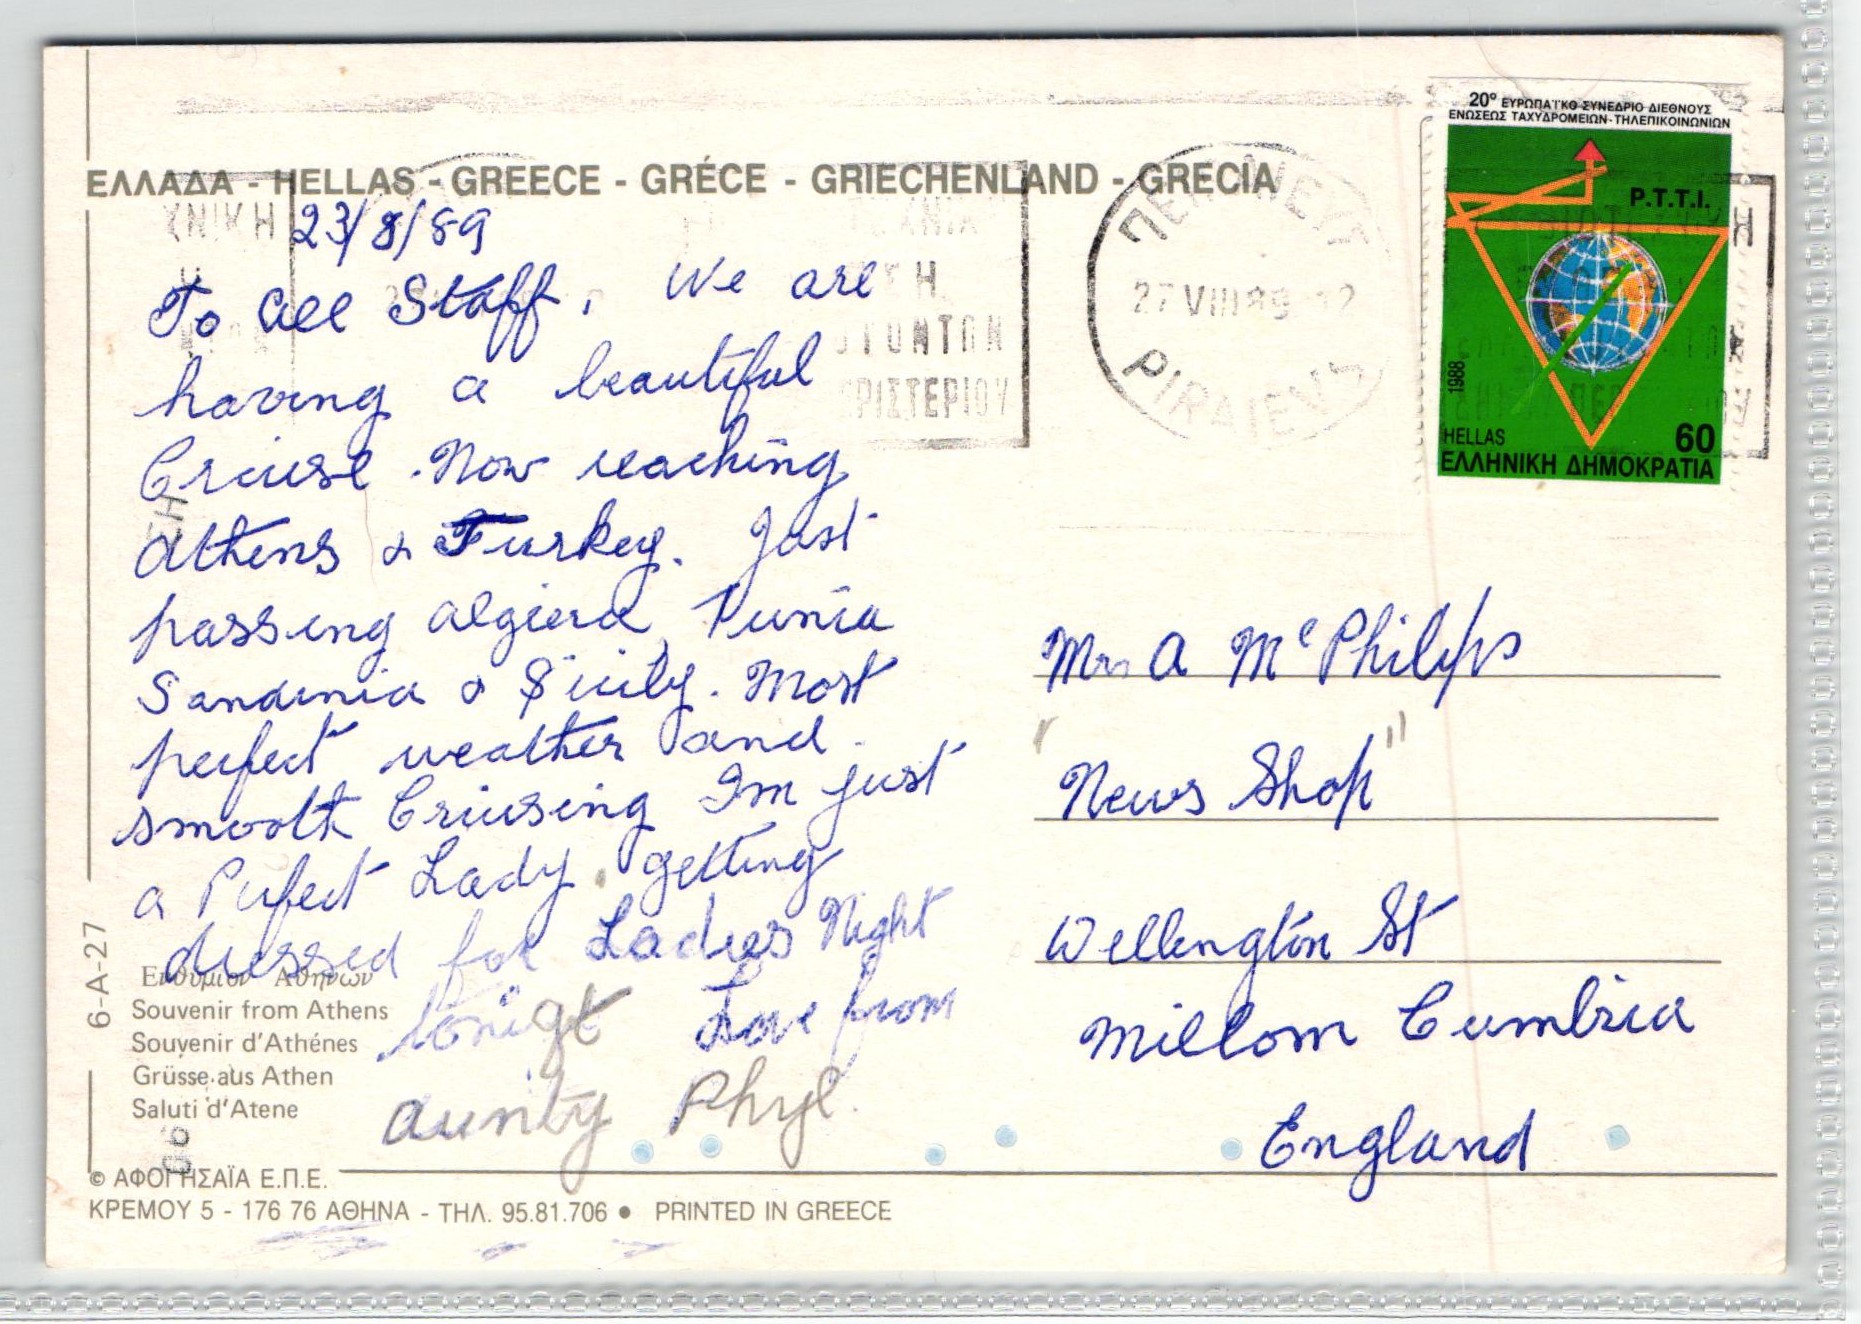 ΕΛΛΑΔΑ - HELLAS - GREECE - GRÉCE - GRIECHENLAND - GRECIA
23/8/89
To all Staff, We are
having a beautiful
Criuse. Now reaching
Athens & Turkey. Just
passing Algiers, Tunia
Sardinia & Sicily. Most
perfect weather and
smooth Criusing Im just
a Perfect Lady. getting
dressed for Ladies Night
tonigt Love from
Aunty Phyl.
6-A-27
Ενθύμιον Αθηνών
Souvenir from Athens
Souvenir d'Athénes
Grüsse aus Athen
Saluti d'Atene
© ΑΦΟΙ ΗΣΑΪΑ Ε.Π.Ε.
ΚΡΕΜΟΥ 5 - 176 76 ΑΘΗΝΑ - ΤΗΛ. 95.81.706 ● PRINTED IN GREECE
27 VIII 89 12
PIRAIEVS
20º ΕΥΡΩΠΑΪΚΟ ΣΥΝΕΔΡΙΟ ΔΙΕΘΝΟΥΣ
ΕΝΩΣΕΩΣ ΤΑΧΥΔΡΟΜΕΙΩΝ-ΤΗΛΕΠΙΚΟΙΝΩΝΙΩΝ
P.T.T.I.
1988
HELLAS 60
ΕΛΛΗΝΙΚΗ ΔΗΜΟΚΡΑΤΙΑ
Mrs A McPhilips
"News Shop"
Wellington St
Millom Cumbria
England